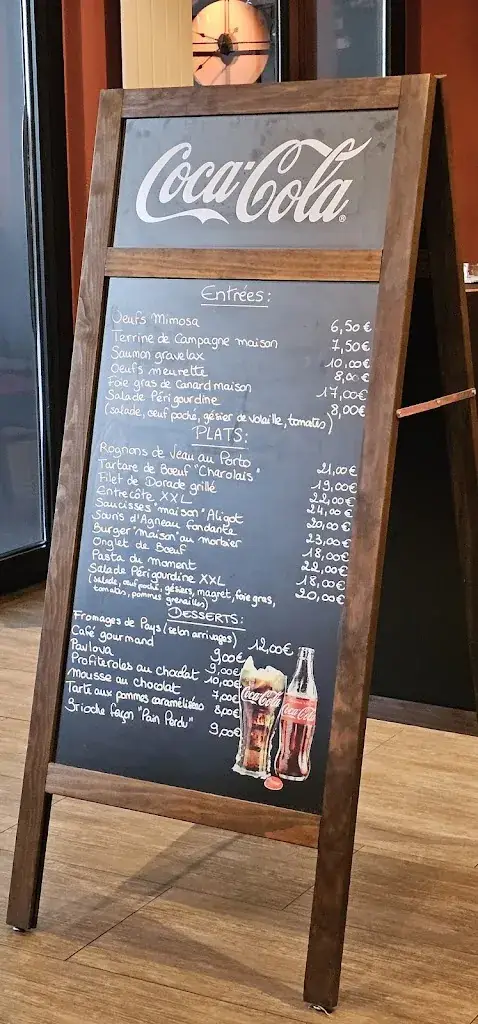 Coca-Cola®
Entrées:
Oeufs Mimosa 6,50€
Terrine de Campagne maison 7,50€
Saumon gravelax 10,00€
Oeufs meurette 8,00€
Foie gras de Canard maison 17,00€
Salade Périgourdine 8,00€
(salade, œuf poché, gésier de volaille, tomates)
PLATS:
Rognons de Veau au Porto 21,00€
Tartare de Bœuf "Charolais" 19,00€
Filet de Dorade grillé 22,00€
Entrecôte XXL 24,00€
Saucisses "maison" Aligot 20,00€
Souris d'Agneau fondante 23,00€
Burger "maison" au morbier 18,00€
Onglet de Bœuf 22,00€
Pasta du moment 18,00€
Salade Périgourdine XXL 20,00€
(salade, œuf poché, gésiers, magret, foie gras,
tomates, pommes grenailles)
DESSERTS:
Fromages de Pays (selon arrivages) 12,00€
Café gourmand 9,00€
Pavlova 9,00€
Profiteroles au chocolat 10,00€
Mousse au chocolat 7,00€
Tarte aux pommes caramélisées 8,00€
Brioche façon "Pain Perdu" 9,00€
Coca-Cola
Coca-Cola